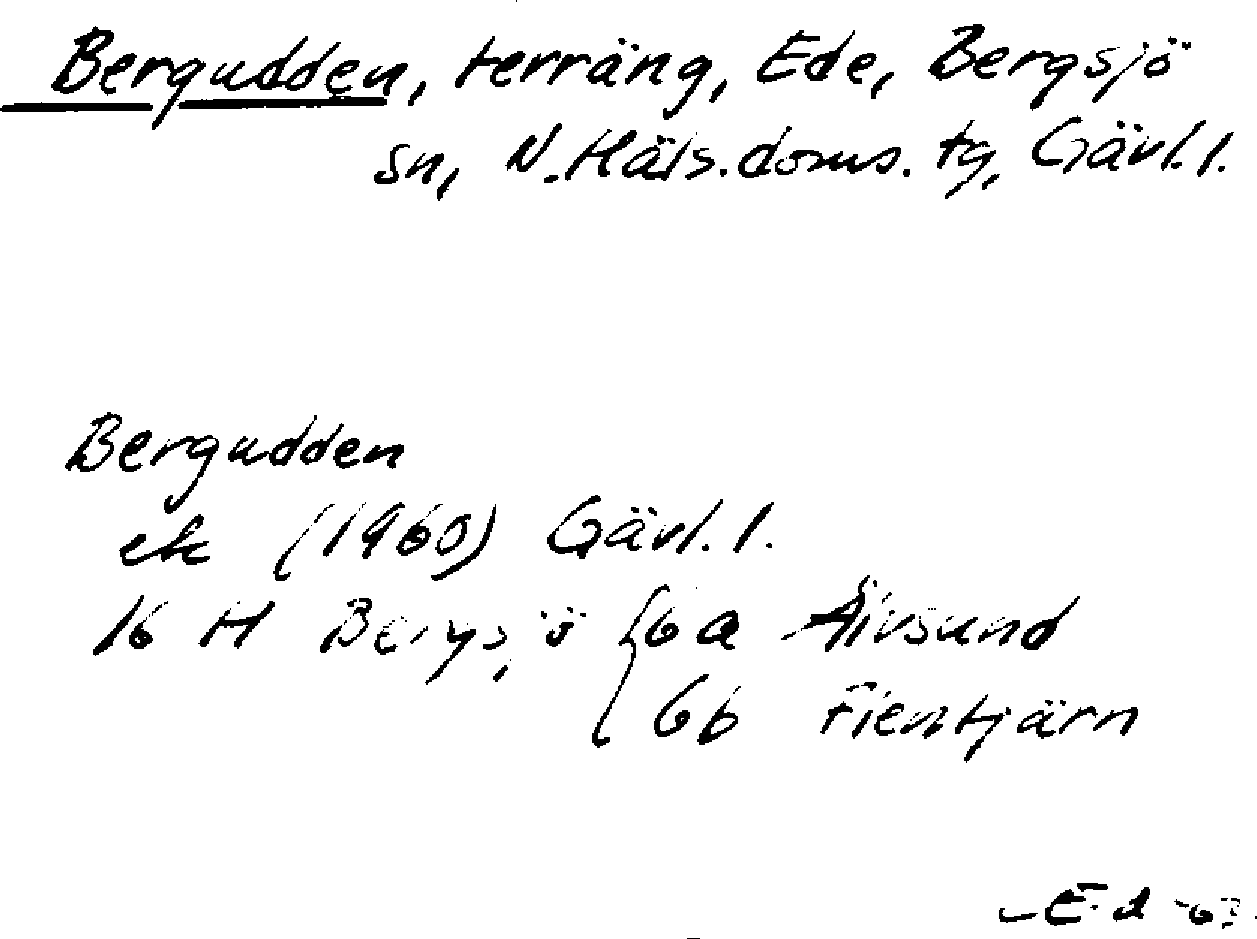 Bergudden, terräng, Ede, Bergsjö
sn, N. Häls. doms. tg, Gävl. l.
Bergudden
ek (1960) Gävl. l.
16 H Bergsjö { 6a Älvsund
6b Fientjärn